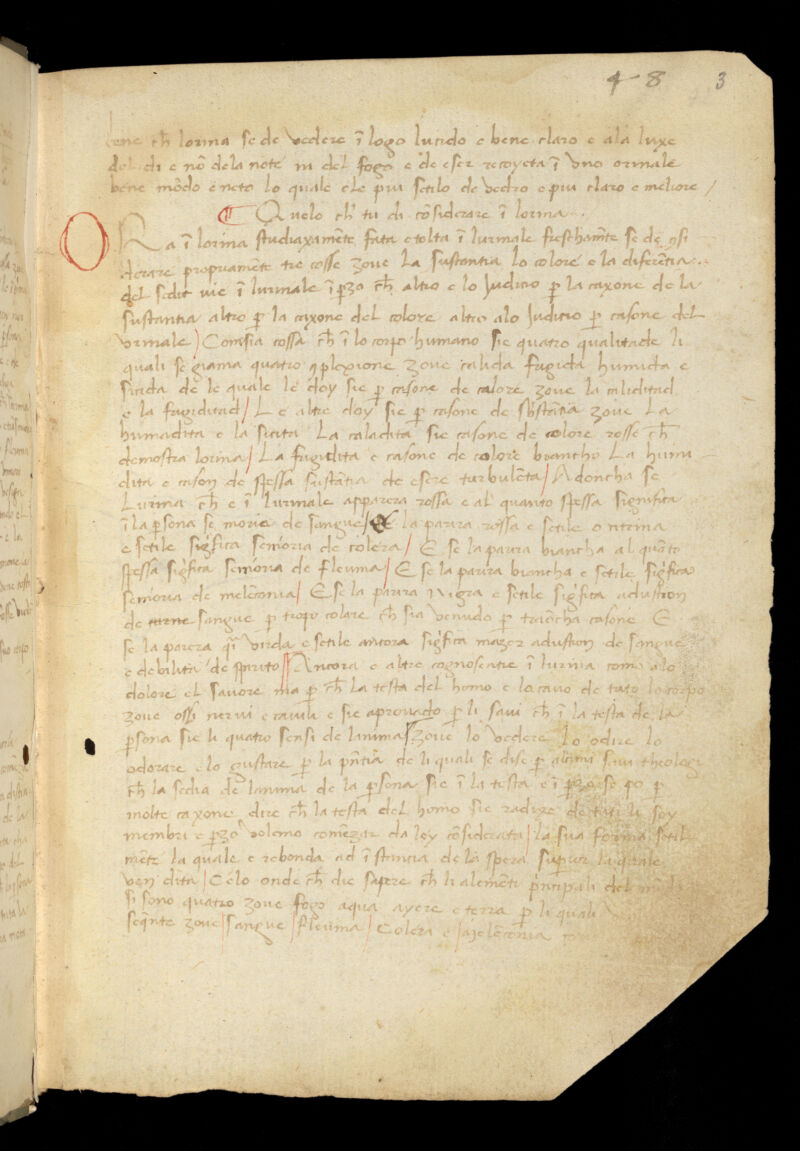 48 3
bene ch̄ lorina se de vedere ī logo lucido e bene claro e ala luxe
del di e nō dela note ni del fogo e de eser recoyeta ī uno ormale
bene mōdo e neto lo quale ele piu sotilo de vedro e piu claro e meliore /
¶ Quelo ch̄ tu di cōsiderare ī lorina
O Ra ī lorina studiaxamēte fata e tolta ī lurinale freschamēte se de ꝯsi
derare propriamēte tre cosse zoue La sustantia lo colore e la diferētia
del sedit vie ī lurinale ī p̄zo ch̄ altro e lo Judicio p̄ la caxone de la
sustantia altro p̄ la caxone del colore altro alo Judicio p̄ casone del
vrinale / Comsia cossa ch̄ ī lo corpo humano sie quatro qualitade li
quali se giama quatro ꝯplexione zoue calida frigida humida e
sicida de le quale le doy sie p̄ casone de calore zoue la caliditad
e la frigiditad / Le altre doy sie p̄ casone de sb̄stātia zoue La
humadita e la sicita La caladita sie casone de colore rosse ch̄
demostra lorina / La frigidita e casone de colore biancho La humi
dita e cason de spessa sustātia de esere turbulēta / Adoncha se
Lurina ch̄ e ī lurinale apparera rossa e al quanto spessa significa
ī la p̄sona se moria de sangue / E la parira rossa e setile o ntrina
e setile siḡfica sem̄oria de colera / E se la parira biancha al quāto
spessa siḡfica sem̄oria de fleuma / E se la parira biancha e setile siḡfica
sem̄oria de melēconia / E se la parira nigra e setile siḡfica adustion
de sangue p̄ tropo colare ch̄ sia venudo p̄ trāncha casone E
se la parera q̄i virda e setile ancora siḡfica mazor adustion de sangue
e debilita de spirito // Ancora e altre cognosentie ī lurina como alo
dolore el savore ma p̄ ch̄ la testa del homo e lo cavo de tuto lo corpo
zoue ossi nervi e cavili e sie aprouado p̄ li savi ch̄ ī la testa de la
p̄sona sie li quatro sensi de lanima / zoue lo vedere Lo odire lo
odorare e lo gustare p̄ la p̄ntia de li quali se dise p̄ alcuni savi theologi
ch̄ la sedia de lanima de la p̄sona sie ī la testa e ī p̄zo se po p̄
molte caxone dire ch̄ la testa del homo sie radixe de tuti li soy
membri e p̄zo volemo comēzar da ley cōsiderata / la sua forma setil
mēte la quale e rebonda ad ī stancia de la spera superior la quale
ven dita / Celo onde ch̄ die sapere ch̄ li alemēti p̄ncipali del
si sono quatro zoue fogo aqua ayere e terra p̄ li quali
seq̄nte zoue / sangue / fleuma / Colera e / melēconia